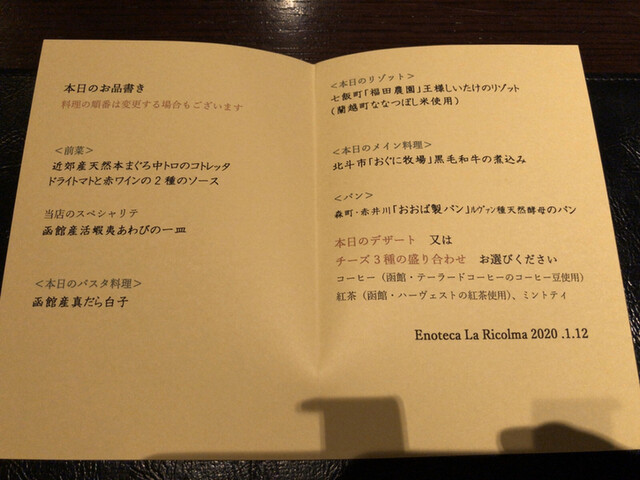 本日のお品書き
料理の順番は変更する場合もございます
＜前菜＞
近郊産天然本まぐろ中トロのコトレッタ
ドライトマトと赤ワインの2種のソース
当店のスペシャリテ
函館産活蝦夷あわびの一皿
＜本日のパスタ料理＞
函館産真だら白子
＜本日のリゾット＞
七飯町「福田農園」王様しいたけのリゾット
(蘭越町ななつぼし米使用)
＜本日のメイン料理＞
北斗市「おぐに牧場」黒毛和牛の煮込み
＜パン＞
森町・赤井川「おおば製パン」ルヴァン種天然酵母のパン
本日のデザート　又は
チーズ3種の盛り合わせ　お選びください
コーヒー（函館・テーラードコーヒーのコーヒー豆使用）
紅茶（函館・ハーヴェストの紅茶使用）、ミントティ
Enoteca La Ricolma 2020 .1.12